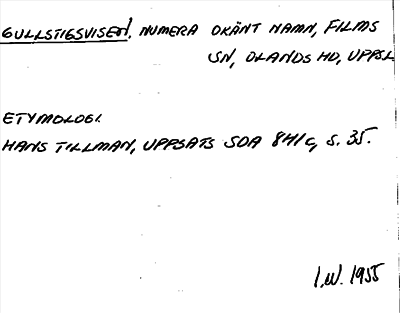 GULLSTIGSVISEN, NUMERA OKÄNT NAMN, FILMS
SN, OLANDS HD, UPPSL
ETYMOLOGI.
HANS TILLMAN, UPPSATS SOA 8H/c, S. 35.
I.W. 1955